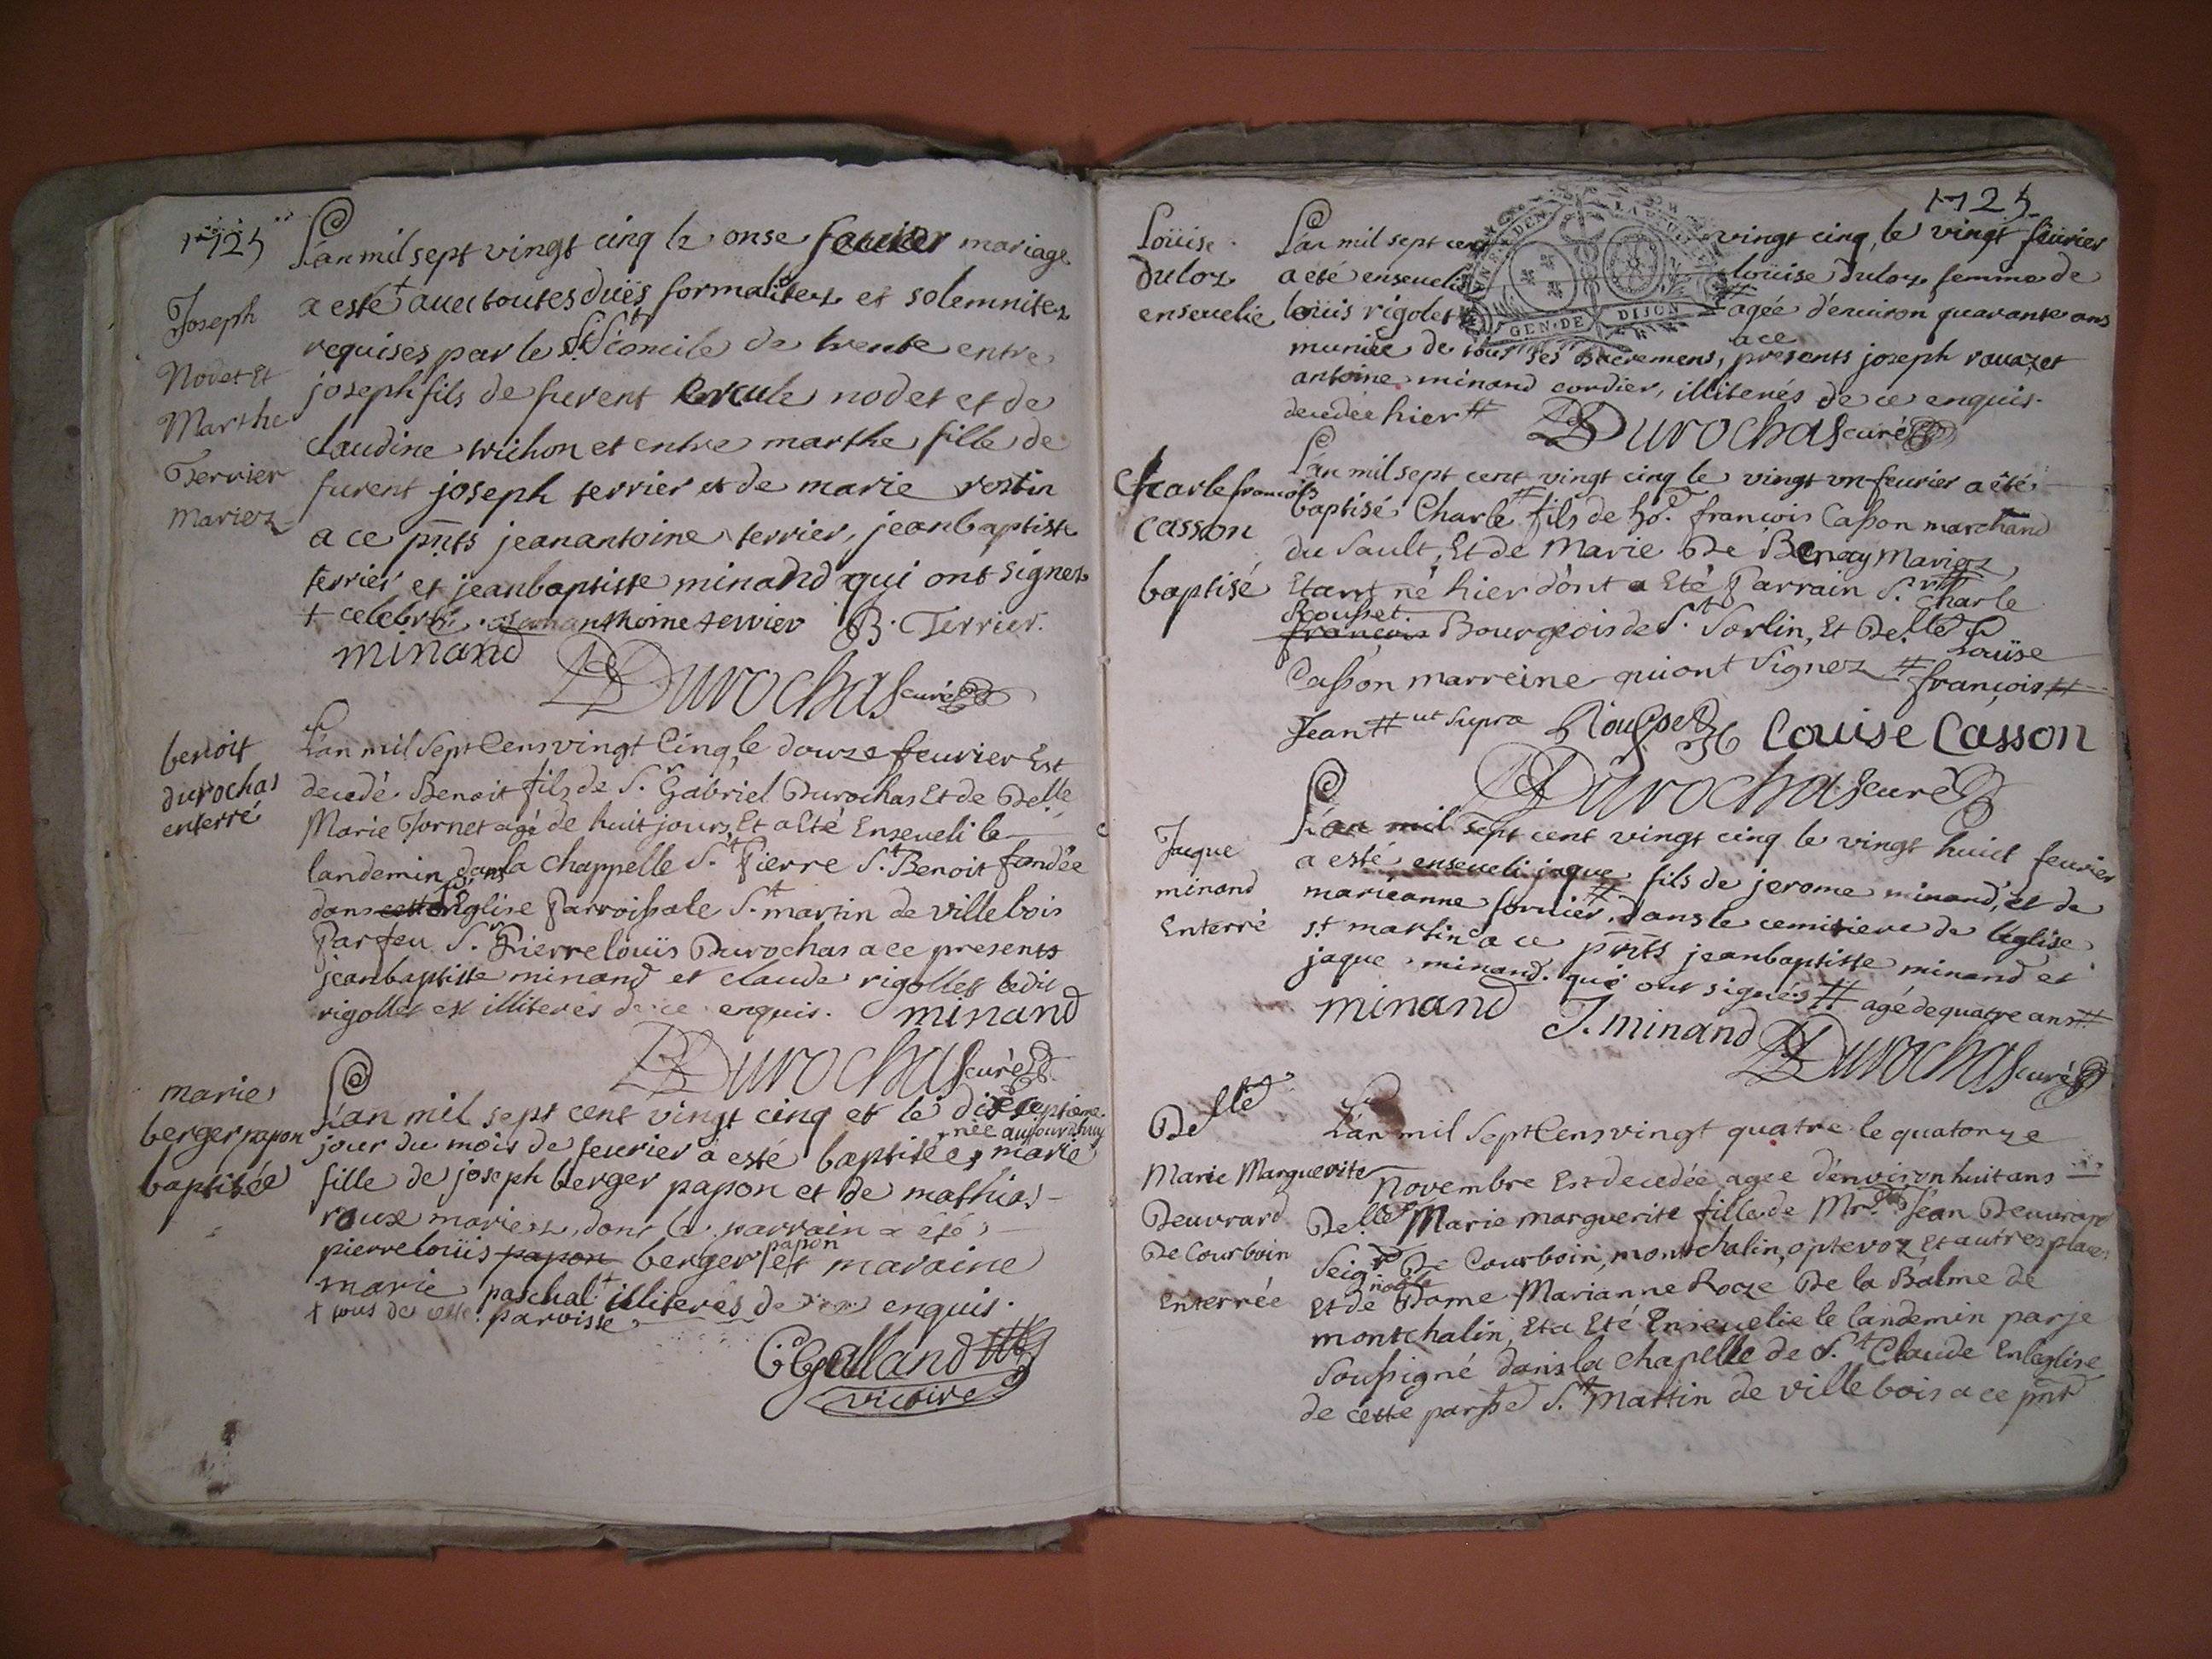 1725
Joseph
Nodet Et
Marthe
Terrier
Mariez
L'an mil sept vingt cinq le onse feurier mariage
a esté + auec toutes duës formalitez et solemnitez
requises par le St concile de trente entre
joseph fils de furent nodet et de
claudine trichon et entre marthe fille de
furent joseph terrier et de marie rostin
a ce pnts jeanantoine terrier, jeanbaptiste
terrier et jeanbaptiste minand qui ont signez
+ celebré. jeananthoine terrier B. Terrier.
minand Durochas curé
benoit
durochas
enterré
L'an mil Sept Cens vingt Cinq, le douze feurier Est
decedé Benoit fils de Sr Gabriel Durochas Et de Delle
Marie Tornet agé de huit jours, Et a Eté Enseueli le
landemin dans la chappelle St Pierre St Benoit fondée
dans Eglise Parroissale St martin de villebois
Par feu Sr Pierre loüis Durochas a ce presents
jeanbaptiste minand et claude rigollet ledit
rigollet est illiterés de ce enquis. minand
Durochas curé
marie
berger papon
baptisée
L'an mil sept cent vingt cinq et le dixseptieme
née aujourdhuy
jour du mois de feurier a esté baptisée, marie
fille de joseph berger papon et de mathia
roux mariez, dont le parrain a été
pierre loüis papon berger papon et maraine
marie paschal + illiterés de ce enquis.
+ tous de cette parroisse
Galland
vicaire
1725
Loüise
duloz
enseuelie
L'an mil sept cent vingt cinq, le vingt feurier
a eté enseuelie loüise duloz femme de
loüis rigolet agée d'enuiron quarante ans
GEN. DE DIJON
a ce
muniée de tous ses sacremens, presents joseph rauaz et
antoine minand cordier, illiterés de ce enquis.
decedée hier # Durochas curé
Charle francois
Casson
baptisé
L'an mil sept cent vingt cinq le vingt vn feurier a été
baptisé Charle # fils de ho. françois Casson marchand
du Sault, Et de Marie De Benay Mariez,
Etant né hier dont a Eté Parrain Sr charle
Rousset
françois Bourgeois de St Sorlin, Et Delle Loüise
Casson marreine qui ont Signez # françois #
Jean # ut Supra Rousset Louise Casson
Durochas curé
Jaque
minand
Enterré
L'an mil Sept cent vingt cinq le vingt huict feurier
a esté enseueli jaque # fils de jerome minand, et de
marieanne fornier, dans le cemitiere de leglise
st martin a ce pnts jeanbaptiste minand et
jaque minand. qui ont signés # agé de quatre ans #
minand J. minand Durochas curé
Delle
Marie Marguerite
Deuvrard
De Courboin
Enterrée
L'an mil Sept Cens vingt quatre le quatorze
Novembre Est decedée agée d'environ huit ans
Delle Marie marguerite fille de Mre Jean Deuvrard
Seigr De Courboin, montchalin, optevoz Et autres places
Et de noble Dame Marianne Roze De la Balme de
montchalin, Et a Eté Enseuelie le landemin par je
Soussigné dans la chapelle de St Claude En leglise
de cette parsse St Martin de villebois a ce pnt